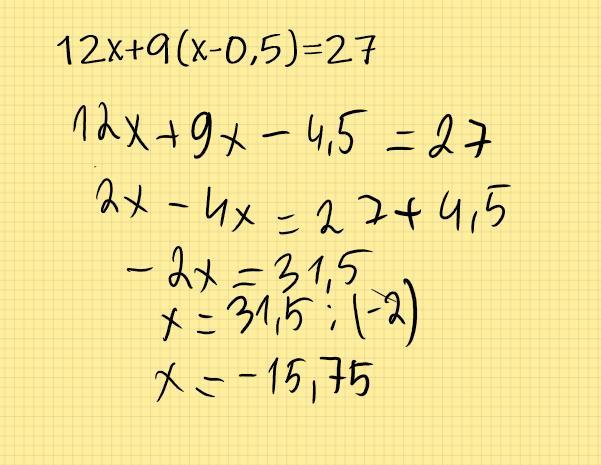 12x+9(x-0,5)=27
12x+9x-4,5=27
2x-4x=27+4,5
-2x=31,5
x=31,5:(-2)
x=-15,75